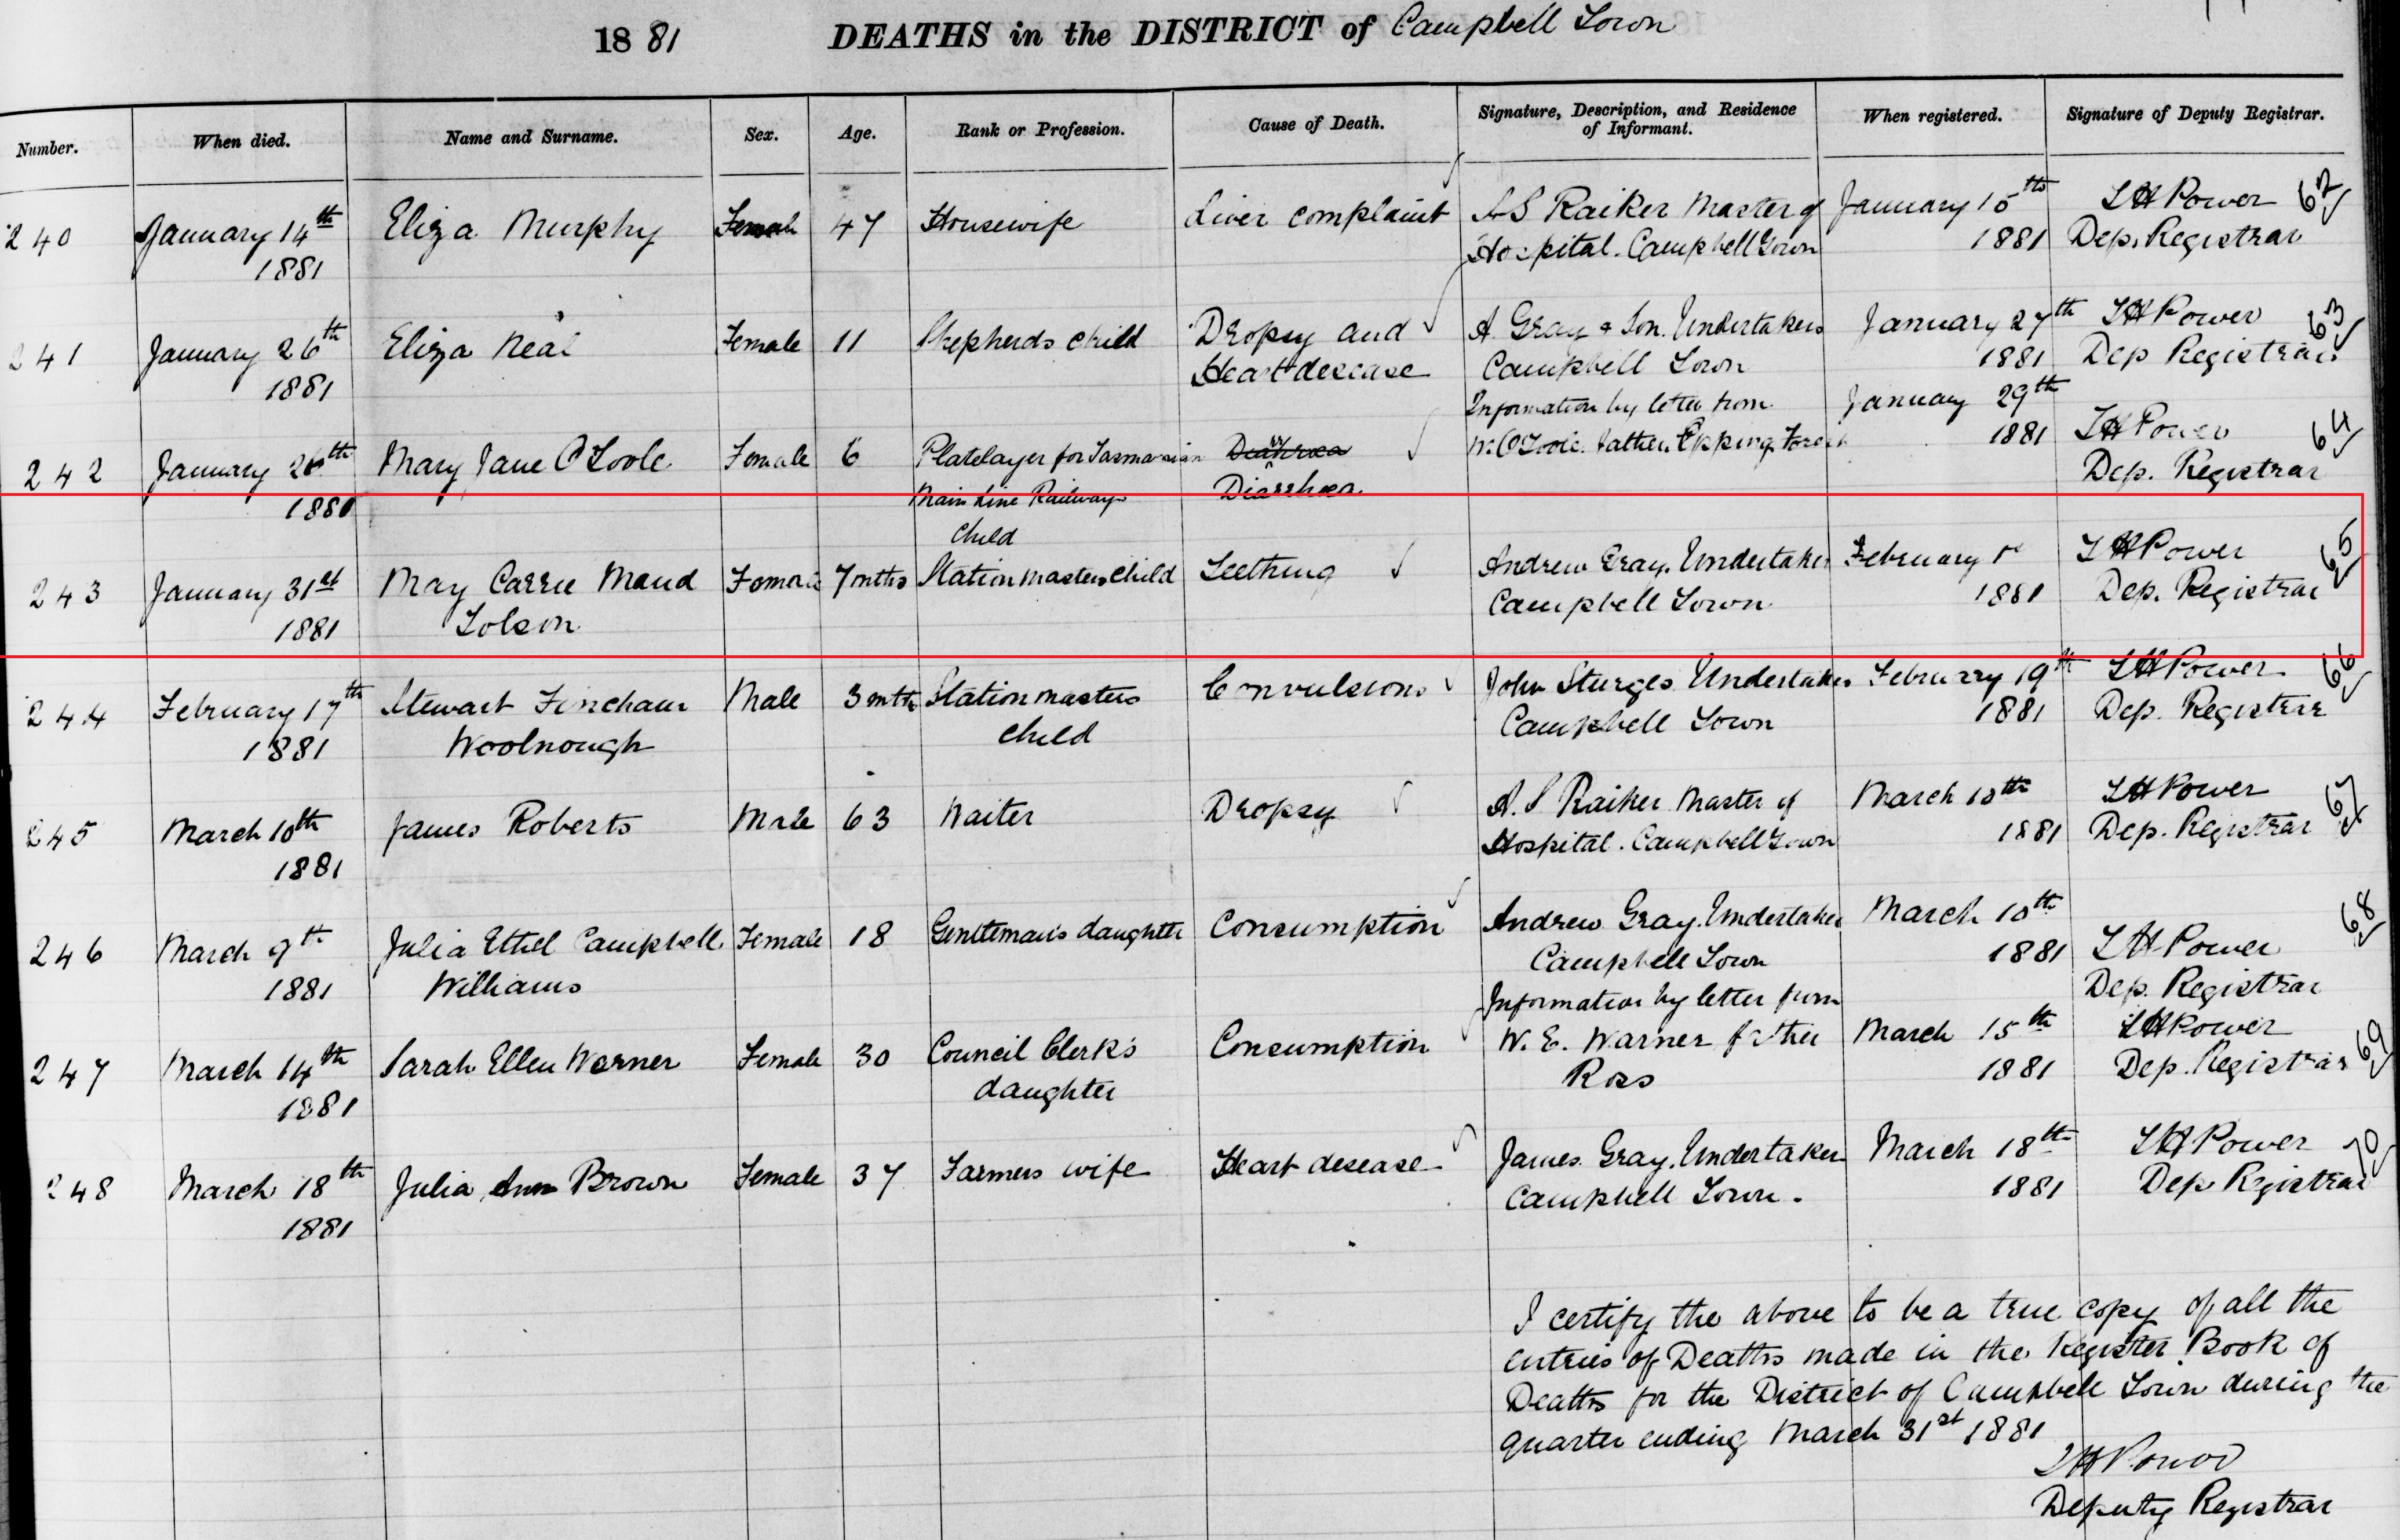 18 81 DEATHS in the DISTRICT of Campbell Town
Number. When died. Name and Surname. Sex. Age. Rank or Profession. Cause of Death. Signature, Description, and Residence of Informant. When registered. Signature of Deputy Registrar.
240 January 14th Eliza Murphy Female 47 Housewife Liver complaint A S Raiker Master of January 15th L H Power 62
1881 Hospital. Campbell Town 1881 Dep. Registrar
241 January 26th Eliza Neal Female 11 Shepherds child Dropsy and A. Gray & Son. Undertakers January 27th L H Power 63
1881 Heart desease Campbell Town 1881 Dep Registrar
242 January 26th Mary Jane O'Toole Female 6 Platelayer for Tasmanian Information by letter from January 29th L H Power 64
1881 Main Line Railways Diarrhœa. W. O'Toole. father. Epping Forest 1881 Dep. Registrar
Child
243 January 31st May Carrie Maud Female 7 mths Station masters child Teething Andrew Gray. Undertaker February 1st L H Power 65
1881 Tolson Campbell Town 1881 Dep. Registrar
244 February 17th Stewart Fincham Male 3 mths Station masters Convulsions John Sturges Undertaker February 19th L H Power 66
1881 Woolnough child Campbell Town 1881 Dep. Registrar
245 March 10th James Roberts Male 63 Waiter Dropsy A. S Raiker Master of March 10th L H Power 67
1881 Hospital. Campbell Town 1881 Dep. Registrar
246 March 9th Julia Ethel Campbell Female 18 Gentleman's daughter Consumption Andrew Gray. Undertaker March 10th L H Power 68
1881 Williams Campbell Town 1881 Dep. Registrar
247 March 14th Sarah Ellen Warner Female 30 Council Clerk's Consumption Information by letter from March 15th L H Power 69
1881 daughter W. E. Warner father 1881 Dep. Registrar
Ross
248 March 18th Julia Ann Brown Female 37 Farmers wife Heart desease James Gray. Undertaker March 18th L H Power 70
1881 Campbell Town. 1881 Dep Registrar
I certify the above to be a true copy of all the
entries of Deaths made in the Register Book of
Deaths for the District of Campbell Town during the
quarter ending March 31st 1881
L H Power
Deputy Registrar